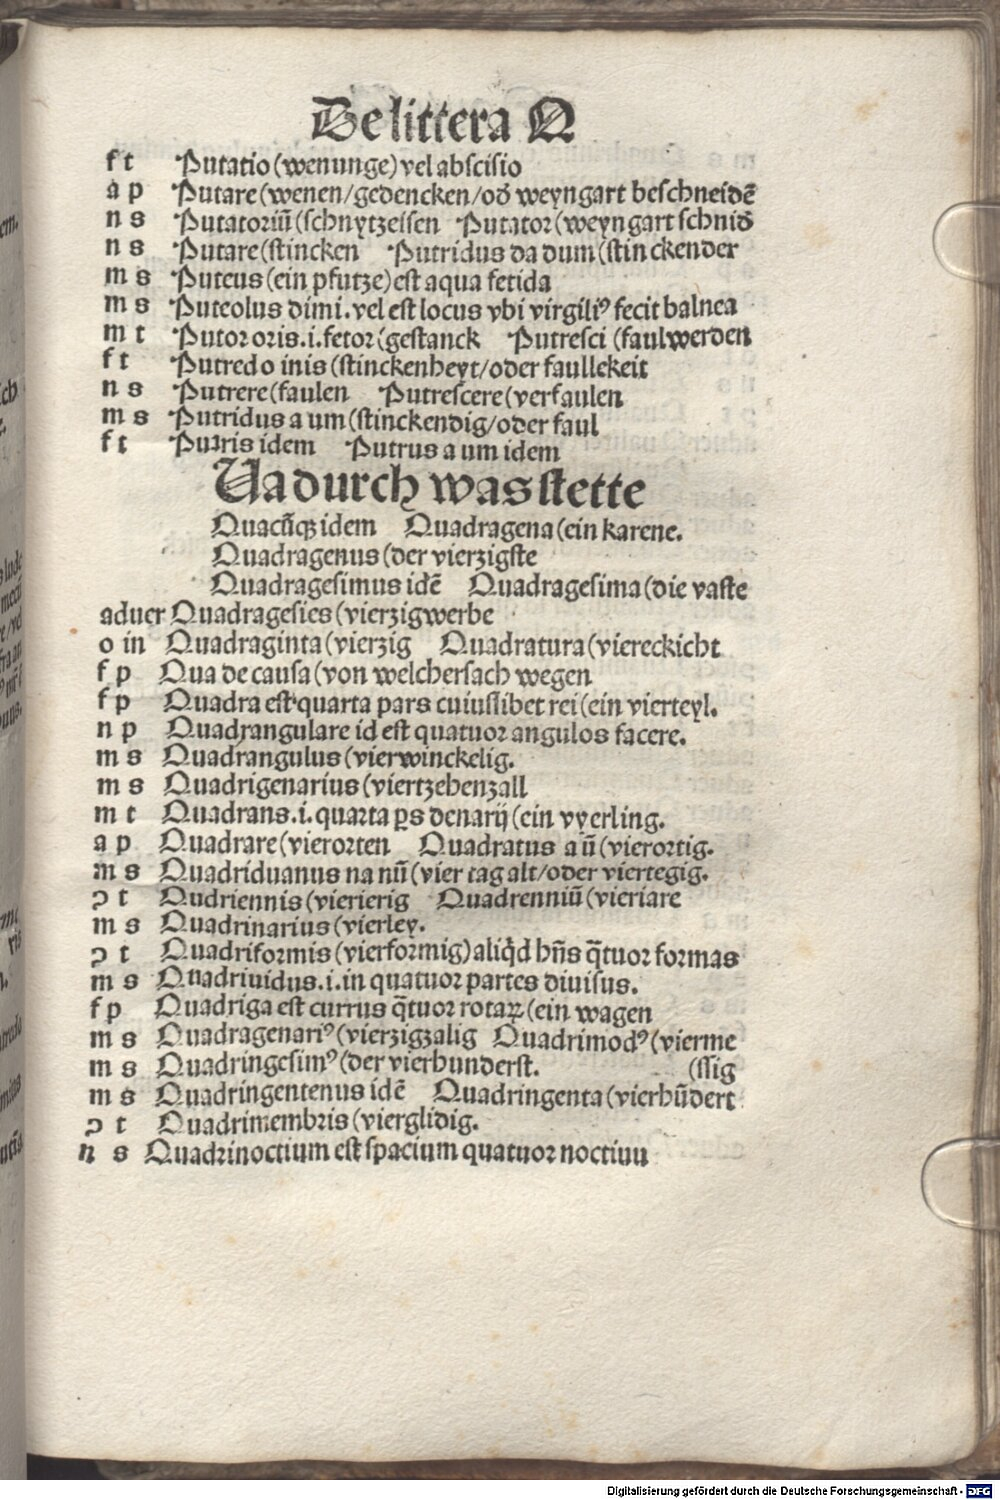 De littera Q
f t Putatio (wenunge) vel abscisio
a p Putare (wenen/gedencken/od̄ weyngart beschneidē
n s Putatoriū (schnytzeisen Putator (weyngart schnid̄
n s Putare (stincken Putridus da dum (stinckender
m s Puteus (ein pfutze) est aqua fetida
m s Puteolus dimi. vel est locus vbi virgiliꝰ fecit balnea
m t Putor oris .i. fetor (gestanck Putresci (faul werden
f t Putredo inis (stinckenheyt/oder faullekeit
n s Putrere (faulen Putrescere (verfaulen
m s Putridus a um (stinckendig/oder faul
f t Putris idem Putrus a um idem
Ua durch was stette
Quacūqꝫ idem Quadragena (ein karene.
Quadragenus (der vierzigste
Quadragesimus idē Quadragesima (die vaste
aduer Quadragesies (vierzigwerbe
o in Quadraginta (vierzig Quadratura (viereckicht
f p Qua de causa (von welcher sach wegen
f p Quadra est quarta pars cuiuslibet rei (ein vierteyl.
n p Quadrangulare id est quatuor angulos facere.
m s Quadrangulus (vierwinckelig.
m s Quadrigenarius (viertzehenzall
m t Quadrans .i. quarta ꝑs denarij (ein vyerling.
a p Quadrare (vierorten Quadratus a ū (vierortig.
m s Quadriduanus na nū (vier tag alt/oder viertegig.
ꝯ t Qudriennis (vierierig Quadrenniū (vieriare
m s Quadrinarius (vierley.
ꝯ t Quadriformis (vierformig) aliq̄d hn̄s q̄tuor formas
m s Quadriuidus .i. in quatuor partes diuisus.
f p Quadriga est currus q̄tuor rotaꝝ (ein wagen
m s Quadragenariꝰ (vierzigzalig Quadrimodꝰ (vierme
m s Quadringesimꝰ (der vierhunderst. (ssig
m s Quadringentenus idē Quadringenta (vierhūdert
ꝯ t Quadrimembris (vierglidig.
n s Quadrinoctium est spacium quatuor noctiuu
Digitalisierung gefördert durch die Deutsche Forschungsgemeinschaft - DFG